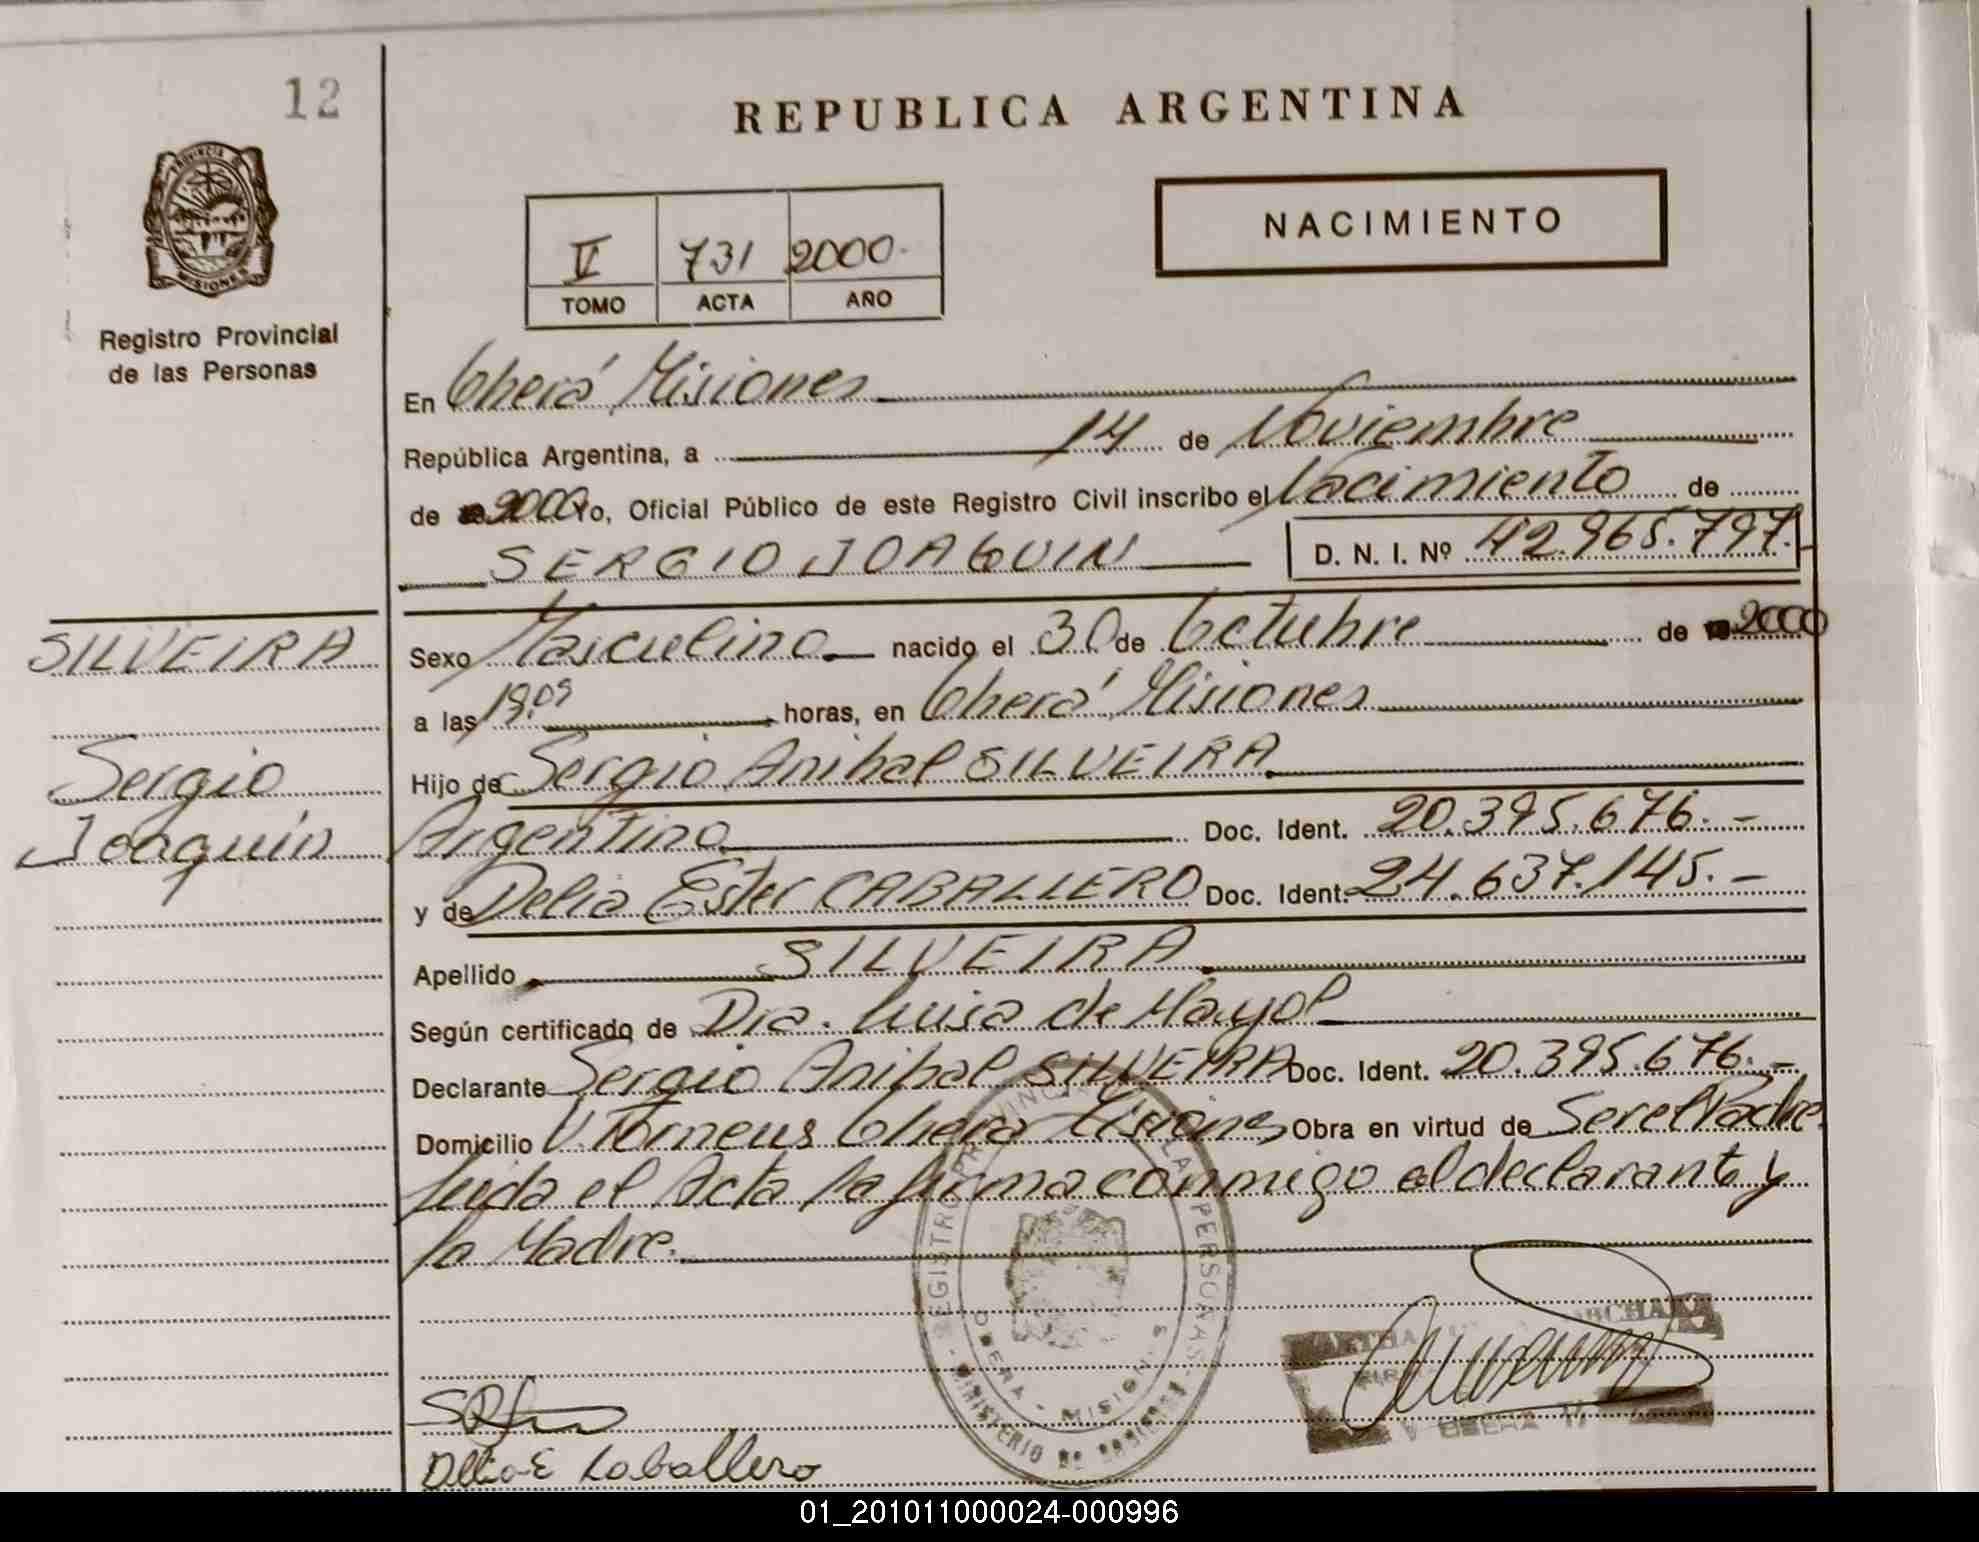 12
REPUBLICA ARGENTINA
PROVINCIA DE
MISIONES
NACIMIENTO
V 731 2000.
TOMO ACTA AÑO
Registro Provincial
de las Personas
En Oberá Misiones
República Argentina, a 14 de Noviembre
de 2000 Yo, Oficial Público de este Registro Civil inscribo el Nacimiento de
SERGIO JOAQUIN D. N. I. Nº 42.965.797.
SILVEIRA
Sexo Masculino nacido el 30 de Octubre de 2000
a las 19:09 horas, en Oberá Misiones
Sergio
Joaquín
Hijo de Sergio Anibal SILVEIRA
Argentino Doc. Ident. 20.395.676.-
y de Delia Ester CABALLERO Doc. Ident. 24.637.145.-
Apellido SILVEIRA
Según certificado de Dra. Luisa de Mayol
Declarante Sergio Anibal SILVEIRA Doc. Ident. 20.395.676.-
Domicilio V. Oberá Misiones Obra en virtud de Ser el Padre.
Leida el Acta la firma conmigo el declarante y
la Madre.
REGISTRO PROVINCIAL DE LAS PERSONAS
OBERA - MISIONES
MINISTERIO DE GOBIERNO
OBERA
Delia E Caballero
01_201011000024-000996